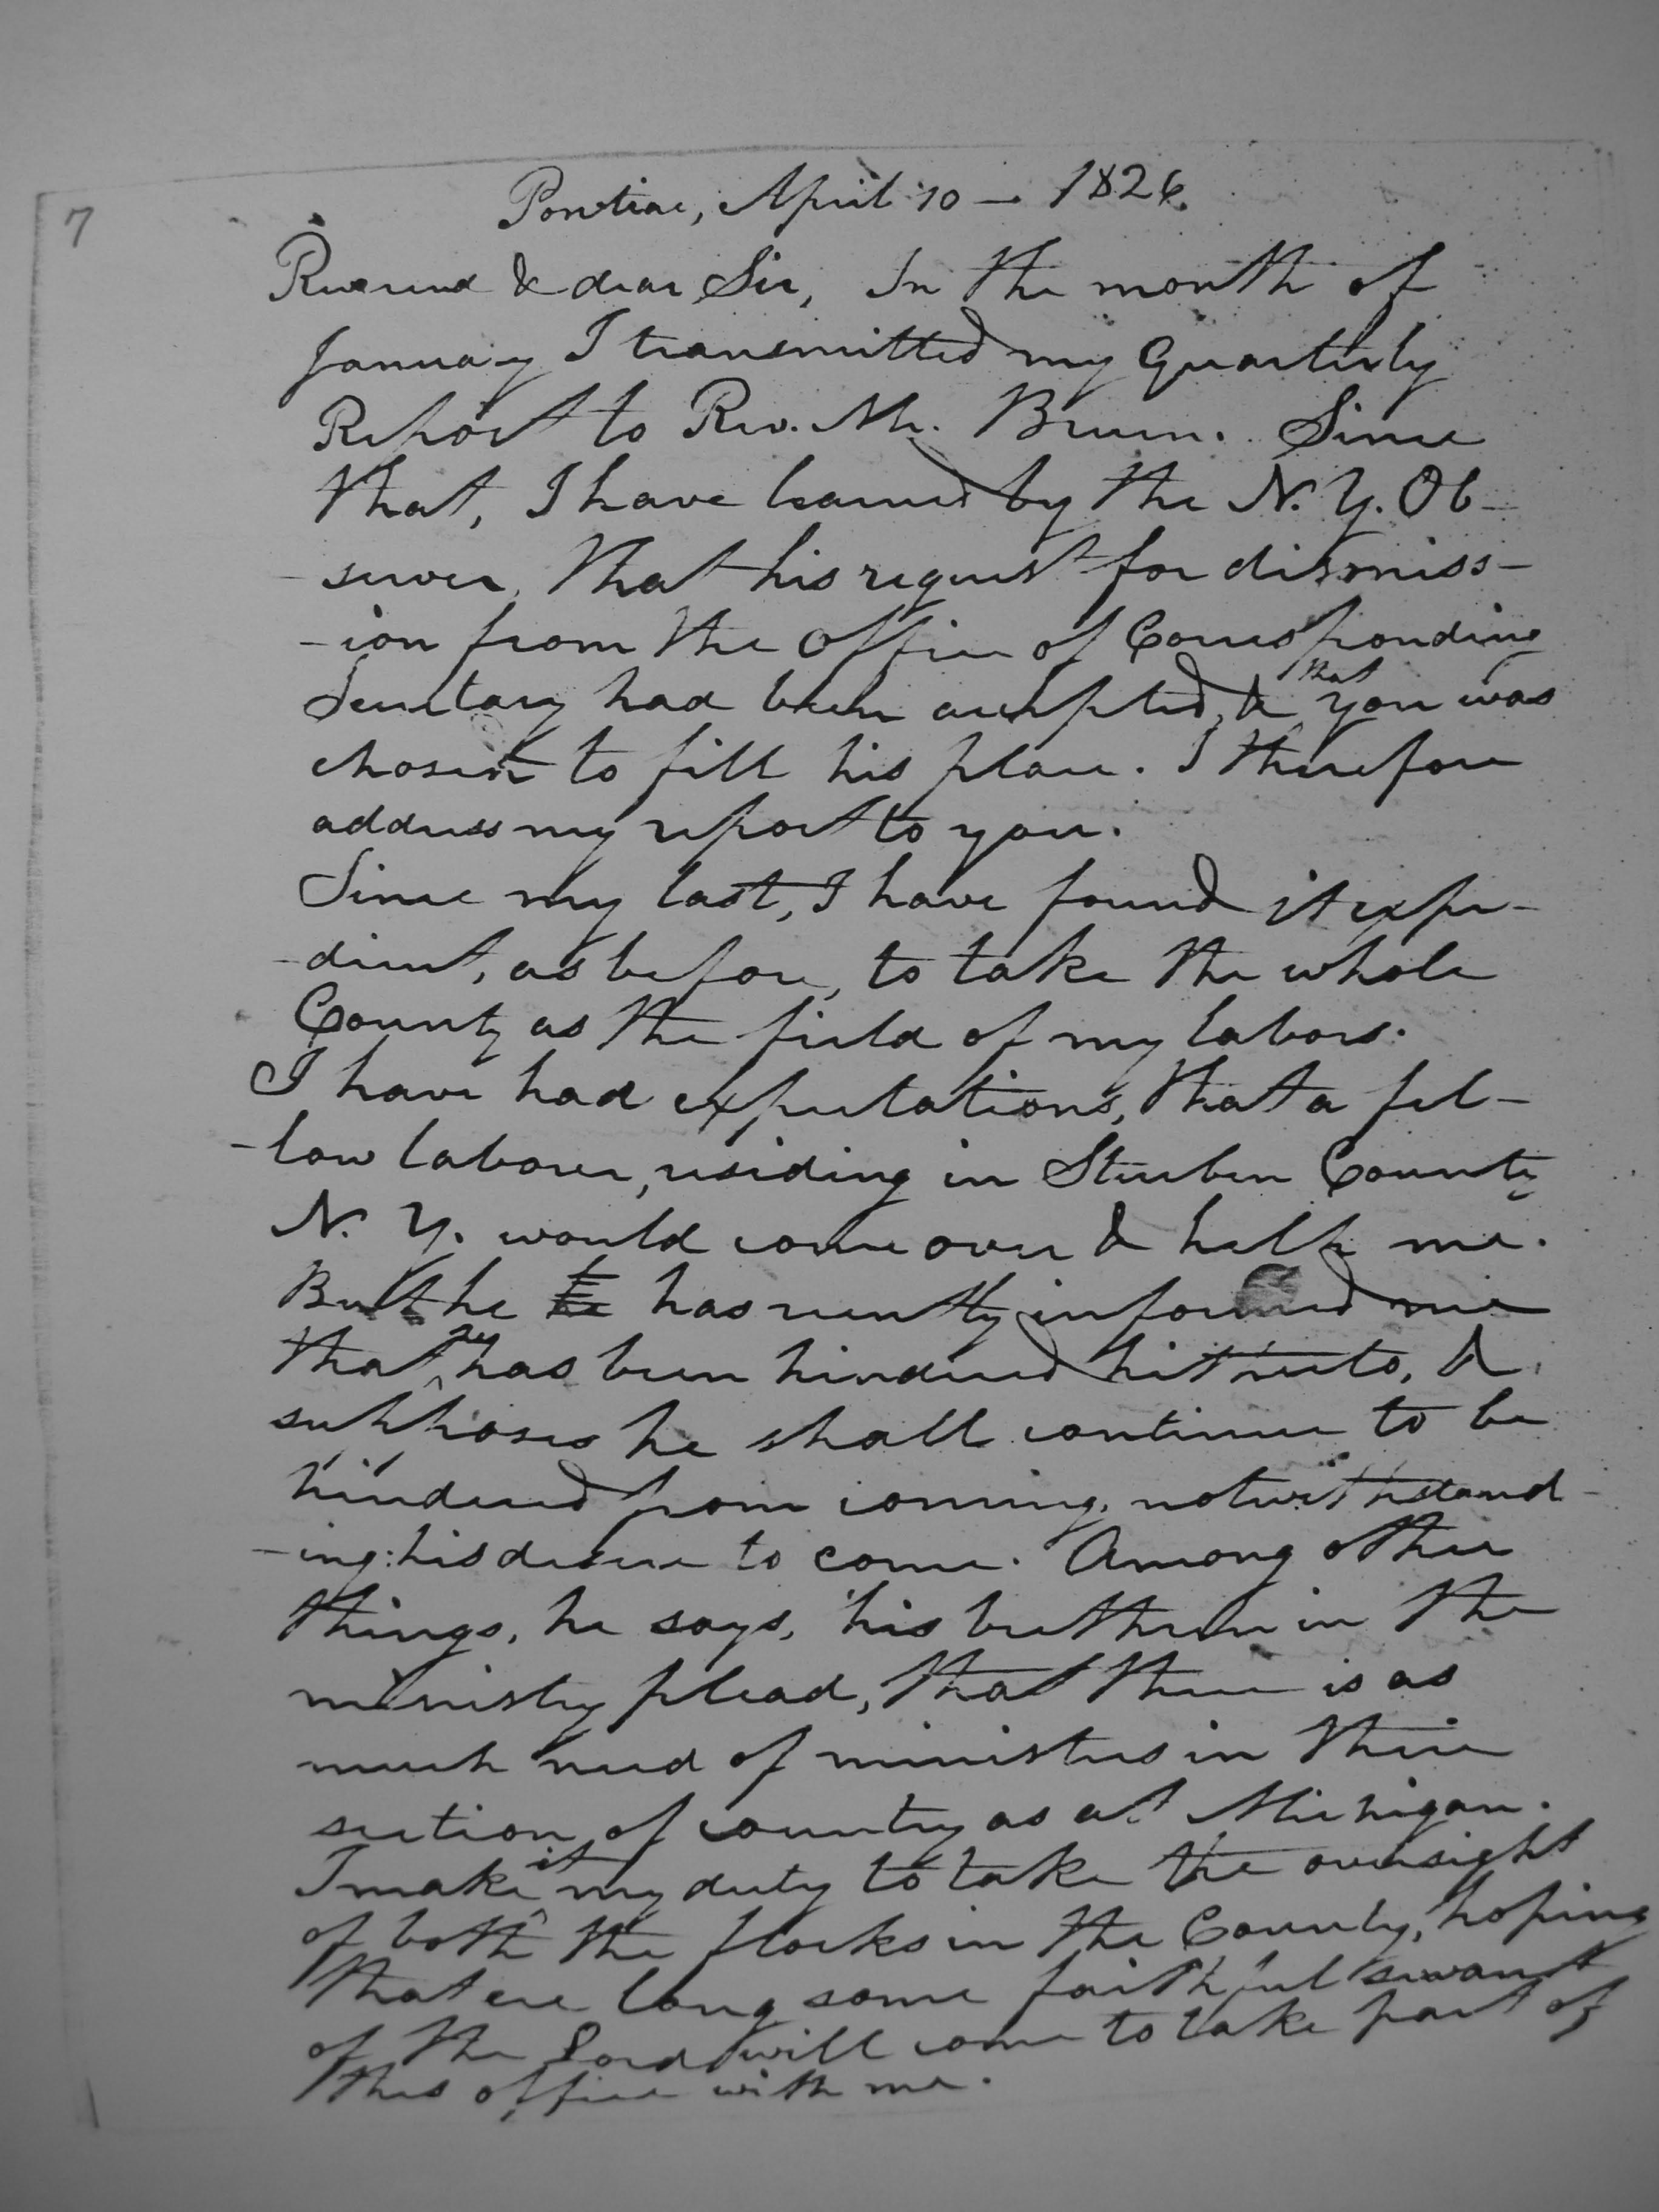 7
Pontiac, April 10 — 1826.
Reverend & dear Sir, In the month of
January I transmitted my Quarterly
Report to Rev. Mr. Bruen. Since
that, I have learned by the N. Y. Ob-
-server, that his request for dismiss-
-ion from the office of Corresponding
Secretary had been accepted, & that you was
chosen to fill his place. I therefore
address my report to you.
Since my last, I have found it expe-
-dient, as before, to take the whole
County as the field of my labors.
I have had expectations, that a fel-
-low laborer, residing in Steuben County
N. Y. would come over & help me.
But he has recently informed me
that he has been hindered hitherto, &
supposes he shall continue to be
hindered from coming, notwithstand-
-ing his desire to come. Among other
things, he says, his brethren in the
ministry plead, that there is as
much need of ministers in their
section of country as at Michigan.
I make it my duty to take the oversight
of both the flocks in the County, hoping
that ere long some faithful servant
of the Lord will come to take part of
this office with me.